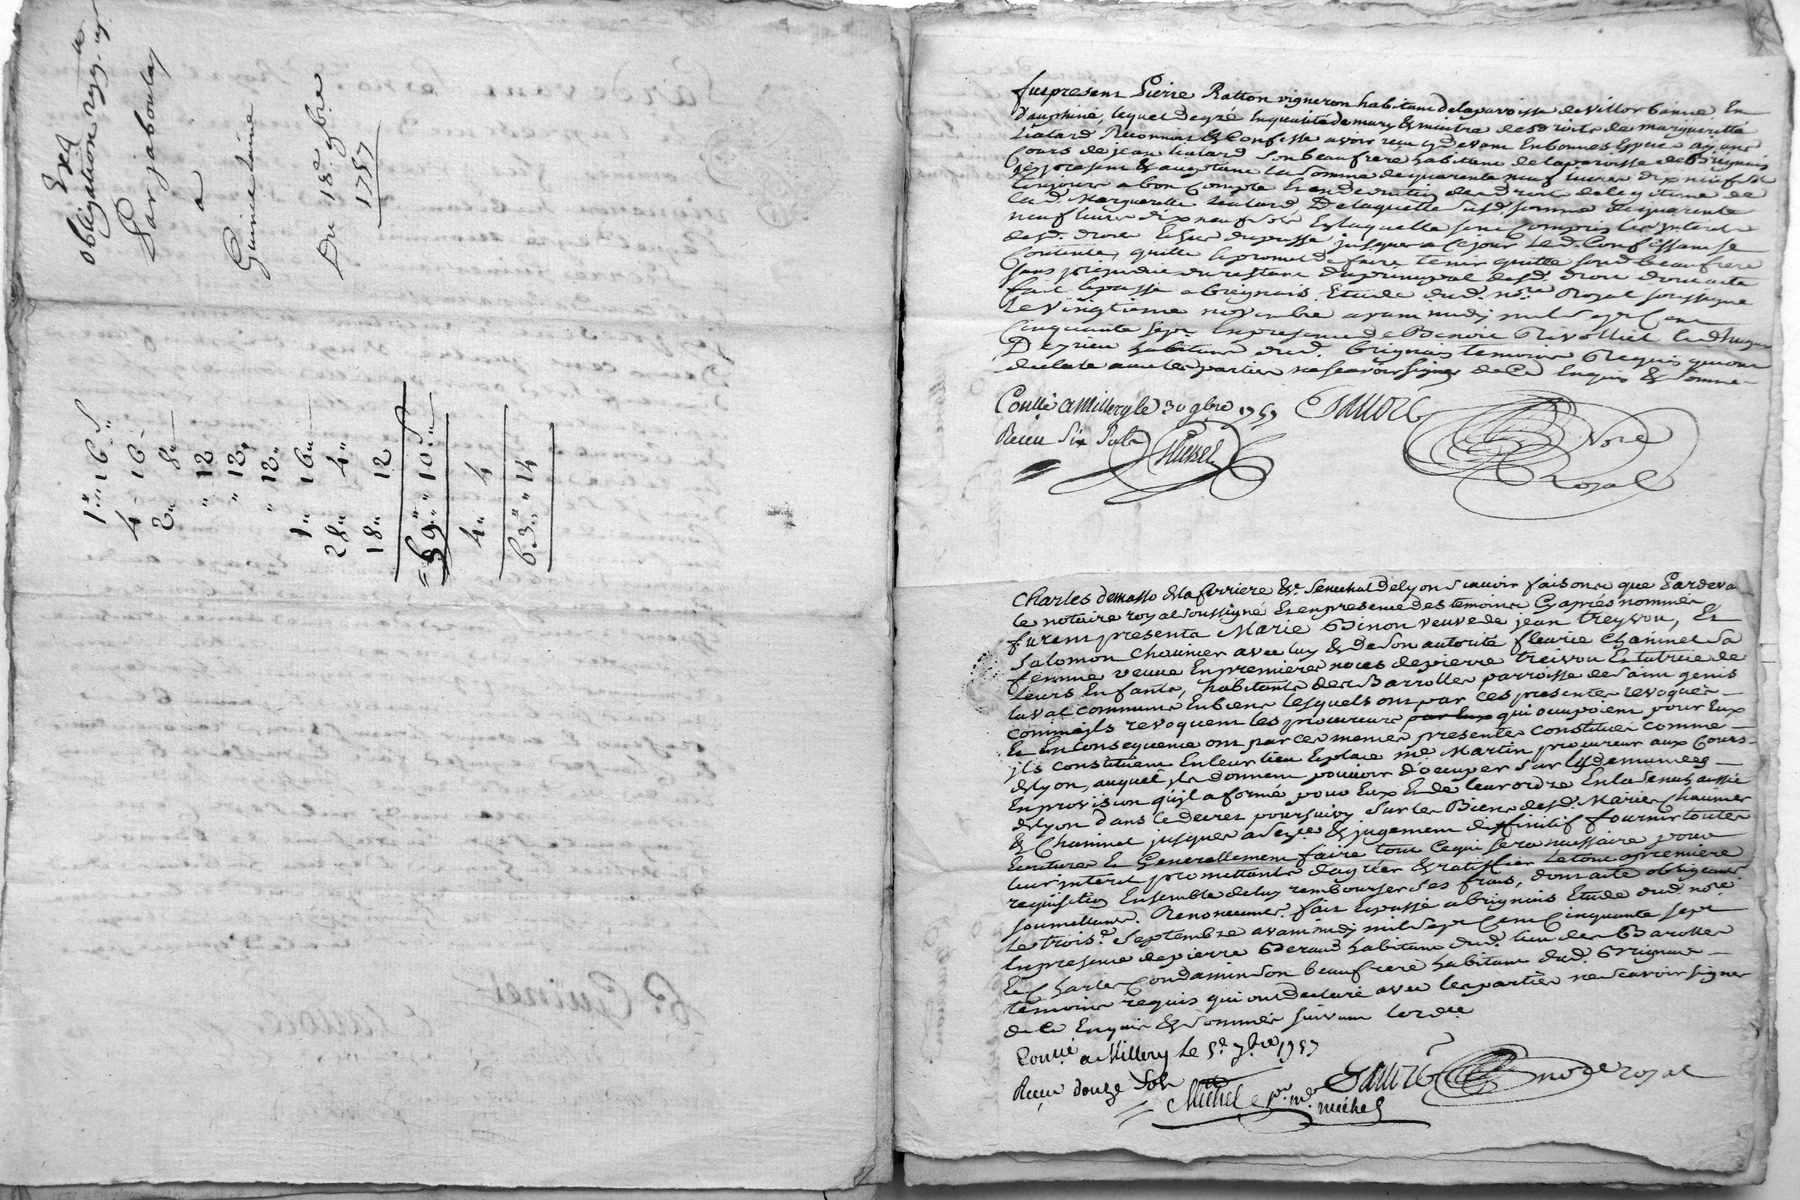 Exq
obligation
Par jaboulay
a
Guinet laine
Du 18e 9bre
1757
1"" 16"
4 - 10 -
2" 8"
" 12
" 12"
" 12"
1" 16"
28" 4"
18" 12
59"" 10""
4" 4
63"" 14
fut present Pierre Ratton vigneron habitant de la paroisse de villorbanne En
Dauphiné, lequel de gré En qualité de mary & maitre des droits de margueritte
Liatard Reconnoit & Confesse avoir reçu cy devant En bonnes Espece ayant
Cours de jean Liatard son beaufrere habitant de la paroisse de Brignais
icy present & acceptant la somme de quarente neuf livres dix neuf sols
toujours a bon Compte & En deduction des droits de legitime de
lad. Margueritte Liatard De laquelle susd. somme de quarente
neuf livres dix neuf sols Et laquelle sont compris les interets
desd. droits Echus du passé jusques a Cejour led. Confessant se
Contente, quitte & promet de faire tenir quitte sond. beaufrere
sans prejudice du restant du principal desd. droits dont acte
fait & passé a Brignais Etude dud. nore Royal soussigné
Le vingtieme novembre avant midy mil sept Cent
Cinquante sept En presence de Benoit Rivollier
habitans dud. Brignais temoins Requis qui ont
declaré avec les parties ne sçavoir signer de Ce Enquis & sommés
Conllé a Millery le 30 9bre 1757
Reçeu Six Sols
Nore
Royal
Charles demasso de la ferriere &c. Senechal de Lyon sçavoir faisons que Pardevant
le notaire royal soussigné Et en presence des temoins Cy aprés nommés
furent presents Marie Binon veuve de jean treyvou, Et
Salomon Chaunier avec luy & de son autorité fleurie Chaninet sa
femme veuve En premieres noces de pierre treivou Et tutrice de
leurs Enfants, habitants des Barrolles parroisse de saint genis
laval communs En biens lesquels ont par ces presentes revoqués
comme ils revoquent les procureurs qui occupoient pour Eux
Et En Consequence ont par ces memes presentes constitués comme
ils constituent En leur lieu & place me Martin procureur aux Cours
de lyon, auquel ils donnent pouvoir d'occuper sur les demandes
En provision quil a formé pour Eux Et de leur ordre En la Senechaussée
de Lyon dans le decret poursuivy sur les Biens desd. Mariés Chaunier
& Chaninet jusques a Sentence & jugement diffinitif fournir toutes
Ecritures Et Generallement faire tout Ce qui sera nessaire pour
leur interet promettants d'agréer & ratiffier le tout a premiere
requisition Ensemble de luy rembourser ses frais, dont acte obligeants
soumettants Renonceants fait & passé a Brignais Etude dud. nore
Le trois.e Septembre avant midy mil sept Cent Cinquante sept
En presence de pierre Beraud habitant dud. lieu des Barolles
Et Charles Condamin son beaufrere habitant dud. Brignais
temoins requis qui ont declaré avec les parties ne sçavoir signer
de Ce Enquis & sommés suivant l'orde
Conllé a Millery Le 5e 7bre 1757
Reçeu douze Sols
Michel
michel
nore royal